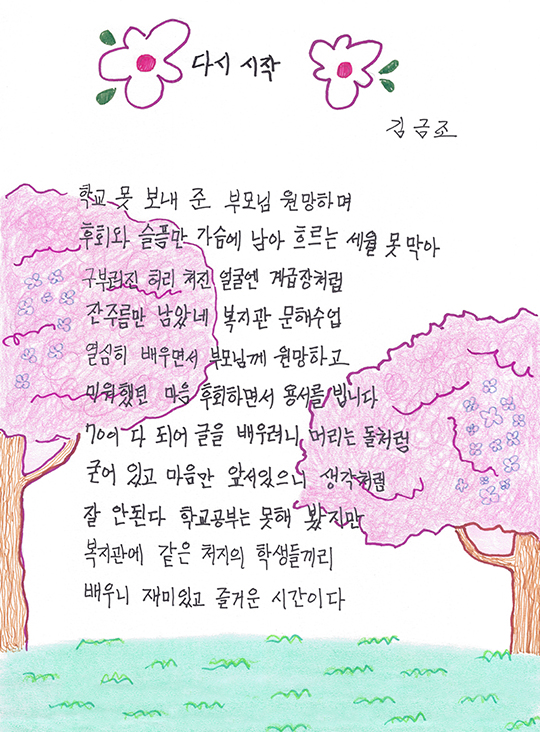 다시 시작
김금조
학교 못 보내 준 부모님 원망하며
후회와 슬픔만 가슴에 남아 흐르는 세월 못 막아
구부러진 허리 처진 얼굴엔 계급장처럼
잔주름만 남았네 복지관 문해수업
열심히 배우면서 부모님께 원망하고
미워했던 마음 후회하면서 용서를 빕니다
70이 다 되어 글을 배우려니 머리는 돌처럼
굳어 있고 마음만 앞서있으니 생각처럼
잘 안된다 학교공부는 못해 봤지만
복지관에 같은 처지의 학생들끼리
배우니 재미있고 즐거운 시간이다